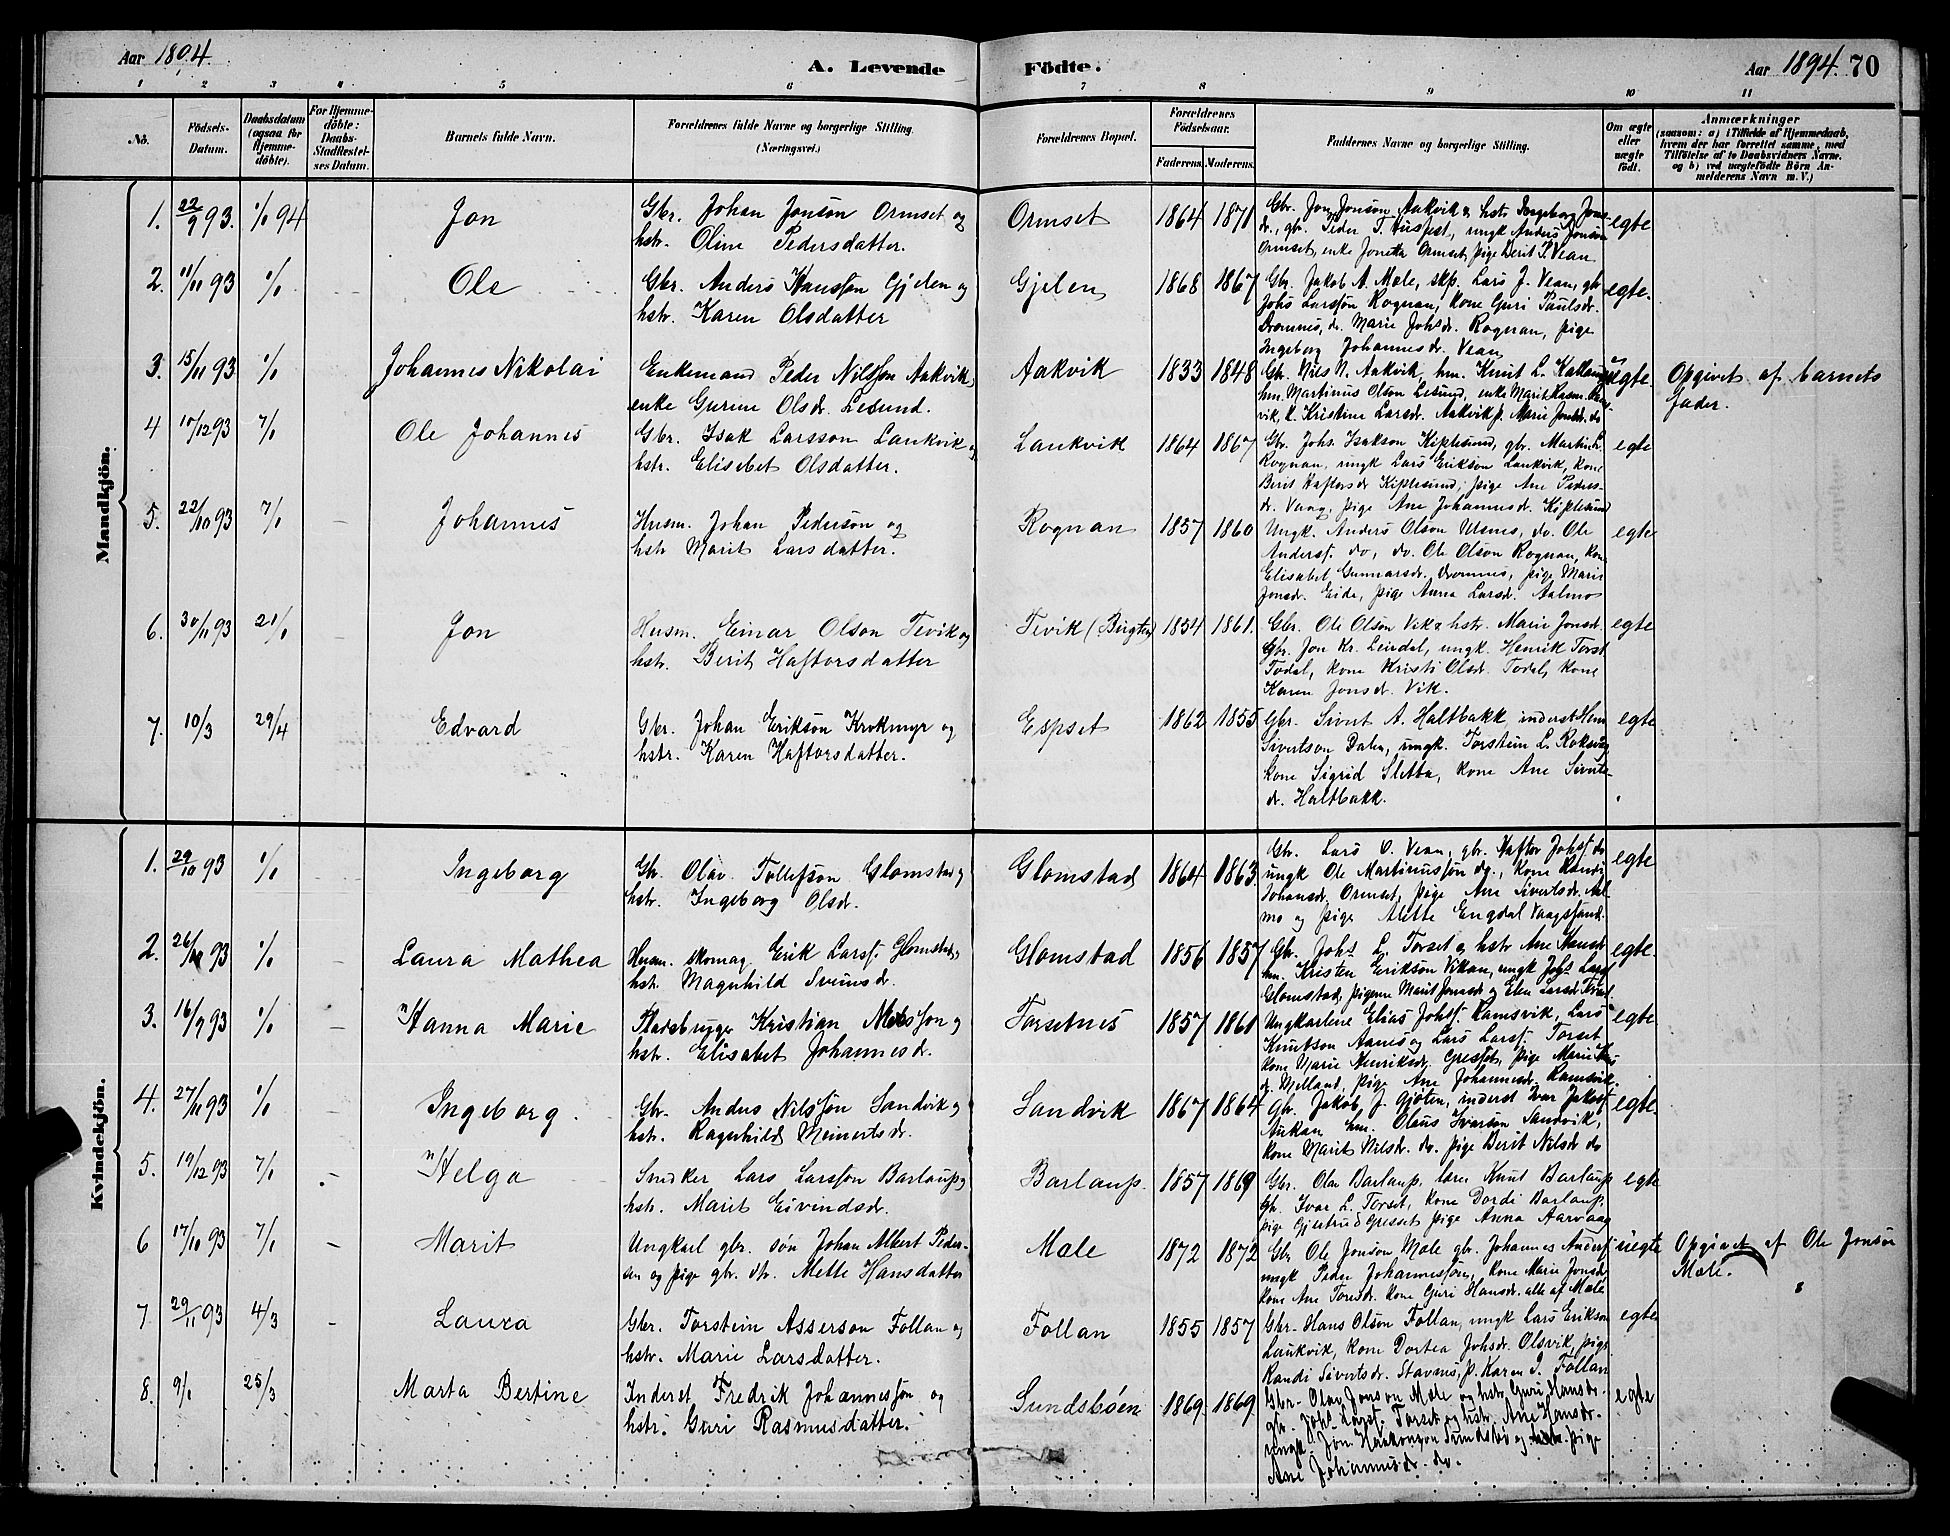 Aar 1894.
A. Levende Födte.
Aar 1894. 70
1 2 3 4 5 6 7 8 9 10 11
No.
Födsels-Datum.
Daabsdatum (ogsaa for Hjemme-döbte).
For Hjemme-döbte: Daabs-Stadfæstel-ses Datum.
Barnets fulde Navn.
Forældrenes fulde Navne og borgerlige Stilling. (Næringsvei.)
Forældrenes Bopæl.
Forældrenes Födselsaar.
Faderens. Moderens.
Faddernes Navne og borgerlige Stilling.
Om ægte eller uægte födt.
Anmærkninger
(saasom: a) i Tilfælde af Hjemmedaab,
hvem der har forrettet samme, med
Tilföielse af to Daabsvidners Navne.
og b) ved uægtefödte Börn An-
melderens Navn m. V.)
Mandkjön.
1. 22/9 93. 1/1 94 Jon
Gbr. Johan Jonsön Ormset og
hstr. Oline Pedersdatter.
Ormset 1864 1871
Gbr. Jon Jonsön Aakvik & hstr Ingeborg Jons-
dr., gbr. Peder T. Husfest, ungk Anders Jonsön
Ormset, enke Jonetta Ormset, pige Berit P. Vean
egte
2. 11/11 93 1/1 Ole
Gbr. Anders Hansson Gjelen og
hstr. Karen Olsdatter
Gjelen 1868 1867
Gbr. Jakob A. Mæle, skp. Lars J. Vean, gbr
Johs Larssön Rognan, kone Guri Paulsdr.
Dromnes, dr. Marie Johsdr. Rognan, pige
Ingeborg Johannesdr. Vean
egte.
3. 15/11 93 1/1 Johannes Nikolai
Enkemand Peder Nilsson Aakvik,
enke Gurine Olsdr. Lesund.
Aakvik 1833 1848
Gbr. Nils N. Aakvik, hm. Knut L.
hm. Martinus Olson Lesund, enke Marit Rasm.
vik, k. Kristine Larsdr. Aakvik p. Marie Jonsdr. do
uegte.
Opgivet af barnets
fader.
4 17/12 93 7/1 Ole Johannes
Gbr. Isak Larsson Laukvik og
hstr. Elisebet Olsdatter.
Laukvik 1864 1867
Gbr. Johs. Isakson Kiplesund, gbr. Martin L.
Rognan, ungk Lars Erikson Laukvik, kone
Berit Haftorsdr Kiplesund, pige Ane Peders-
dr. Vaag, pige Ane Johannesdr. Kiplesund
egte
5. 22/10 93 7/1 Johannes
Husm. Johan Pederson og
hstr Marit Larsdatter.
Rognan 1857 1860
Ungk. Anders Olson Ulsnes, do. Ole
Andersf. do, do. Ole Olson Rognan, kone
Elisabet Gunnarsdr. Dromnes, pige Marie
Jonsdr. Eide, pige Anna Larsdr. Aalmo
egte
6. 30/11 93 21/1 Jon
Husm. Einar Olson Tevik og
hstr. Berit Haftorsdatter
Tevik (Bugten) 1854 1861.
Gbr. Ole Olson Vik & hstr. Marie Jonsdr.
Gbr. Jon Kr. Leirdal, ungk. Henrik Torst
Todal, kone Kristi Olsdr. Todal, kone
Karen Jonsdr. Vik.
egte
7. 10/3 29/4 Edvard
Gbr. Johan Erikson Krokmyr og
hstr. Karen Haftorsdatter.
Espset 1862 1855
Gbr. Sivert A. Haltbakk, inderst
Sivertson Dalen, ungk. Torstein L. Roksvaag
kone Sigrid Sletta, kone Ane Siverts-
dr. Haltbakk.
egte
Kvindekjön.
1. 29/10 93 1/1 Ingeborg
Gbr. Olav Tollefson Glomstad og
hstr. Ingeborg Olsdr.
Glomstad 1864 1863.
Gbr. Lars O. Vean, gbr. Haftor Johsf. do
ungk Ole Martinussön do, kone Randi
Johansdr. Ormset, pige Ane Sivertsdr. Aal-
mo og pige Mette Engdal Vaagsfand.
egte
2. 26/10 93 1/1 Laura Mathea
Husm. skomag. Erik Larsf. Glomstad,
hstr. Magnhild Sveinsdr.
Glomstad 1856 1857
Gbr. Johs L. Torset & hstr Ane Hansdr
hm. Kristen Erikson Vikan, ungk Johs Larsf
Glomstad, pigerne Marit Jonsdr og Elen Larsdr
egte.
3. 16/9 93 1/1 Hanna Marie
Pladsbruger Kristian Nilsson og
hstr. Elisabet Johannesdr.
Torsetnes 1857 1861
Ungkarlene Elias Johsf. Ramsvik, Lars
Knutson Aanes og Lars Larsf. Torset
kone Marie Henriksdr. Gresset, pige Marie
dr. Melland, pige Ane Johannesdr. Ramsvik.
egte.
4. 27/11 93 1/1 Ingeborg.
Gbr. Anders Nilsson Sandvik og
hstr. Ragnhild Meinertsdr.
Sandvik 1867 1864
Gbr. Jakob J. Gjölen, inderst Ivar Jakobf.
Aukan hm. Olaus Ivarsön Sandvik,
kone Marit Nilsdr. do. pige Berit Nilsdr do
egte.
5. 19/12 93 7/1 Helga
Snedker Lars Larsson Barlaup og
hstr. Marit Eivindsdr.
Barlaup. 1857 1869
Gbr. Olav Barlaup, lærer Knut Barlaup
Gbr. Ivar L. Torset, kone Dordi Barlaup,
pige Gjertrud Gresset pige Anna Aarvaag
egte
6 17/10 93 7/1 Marit
Ungkarl gbr. sön Johan Albert Peder-
sen og pige gbr. dtr. Mette Hansdatter
Mæle 1872 1872
Gbr Ole Jonson Mæle gbr. Johannes Andersf
ungk Peder Johannessön, kone Marie Jonsdr
kone Ane Toresdr. kone Guri Hansdr. alle af Mæle
uegte
Opgivet af Ole Jonsön
Mæle.
7 29/11 93 4/3 Laura
Gbr. Torstein Asserson Follan og
hstr. Marie Larsdatter.
Follan 1855 1857
Gbr. Hans Olson Follan, ungk Lars Erikson
Laukvik, kone Dortea Johsdr. Olsvik, pige
Randi Sivertsdr. Stavnes, p. Karen I. Follan
egte
8. 9/1 25/3 Marta Bertine
Inderst Fredrik Johannesson og
hstr. Guri Rasmusdatter.
Sundsböen 1869. 1869.
Gbr. Olav Jonson Mæle og hstr. Guri Hansdr.
gbr. Johs Larsf. Torset og hstr. Ane Hansdr.
ungk Jon Haakonson Sundsbö og pige
Ane Johannesdr. do.
egte